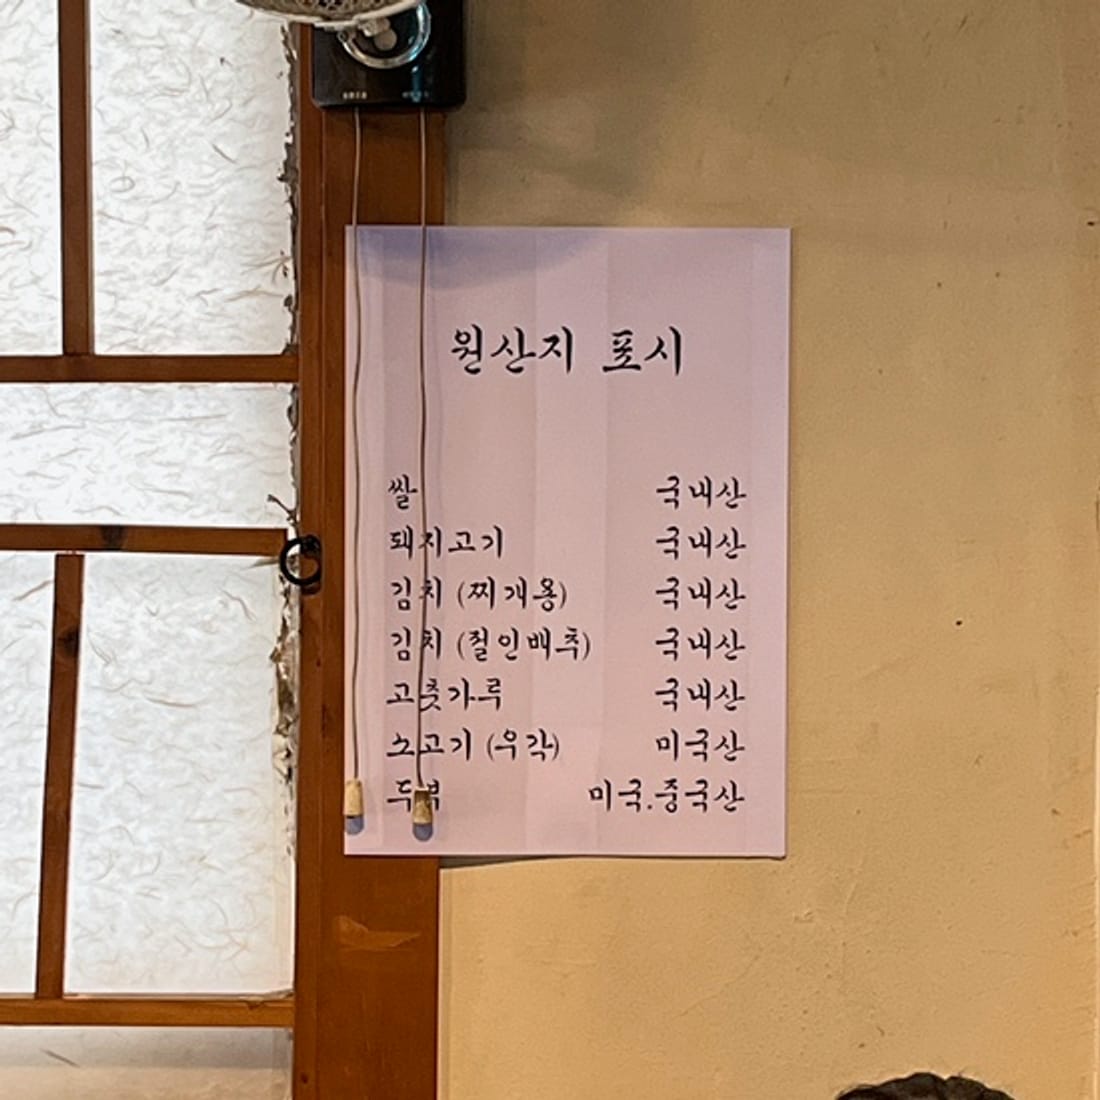 원산지 표시
쌀 국내산
돼지고기 국내산
김치 (찌개용) 국내산
김치 (절인배추) 국내산
고춧가루 국내산
소고기 (우각) 미국산
두부 미국.중국산